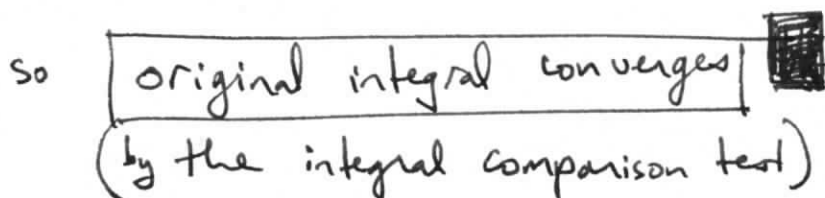 so original integral converges
(by the integral comparison test)